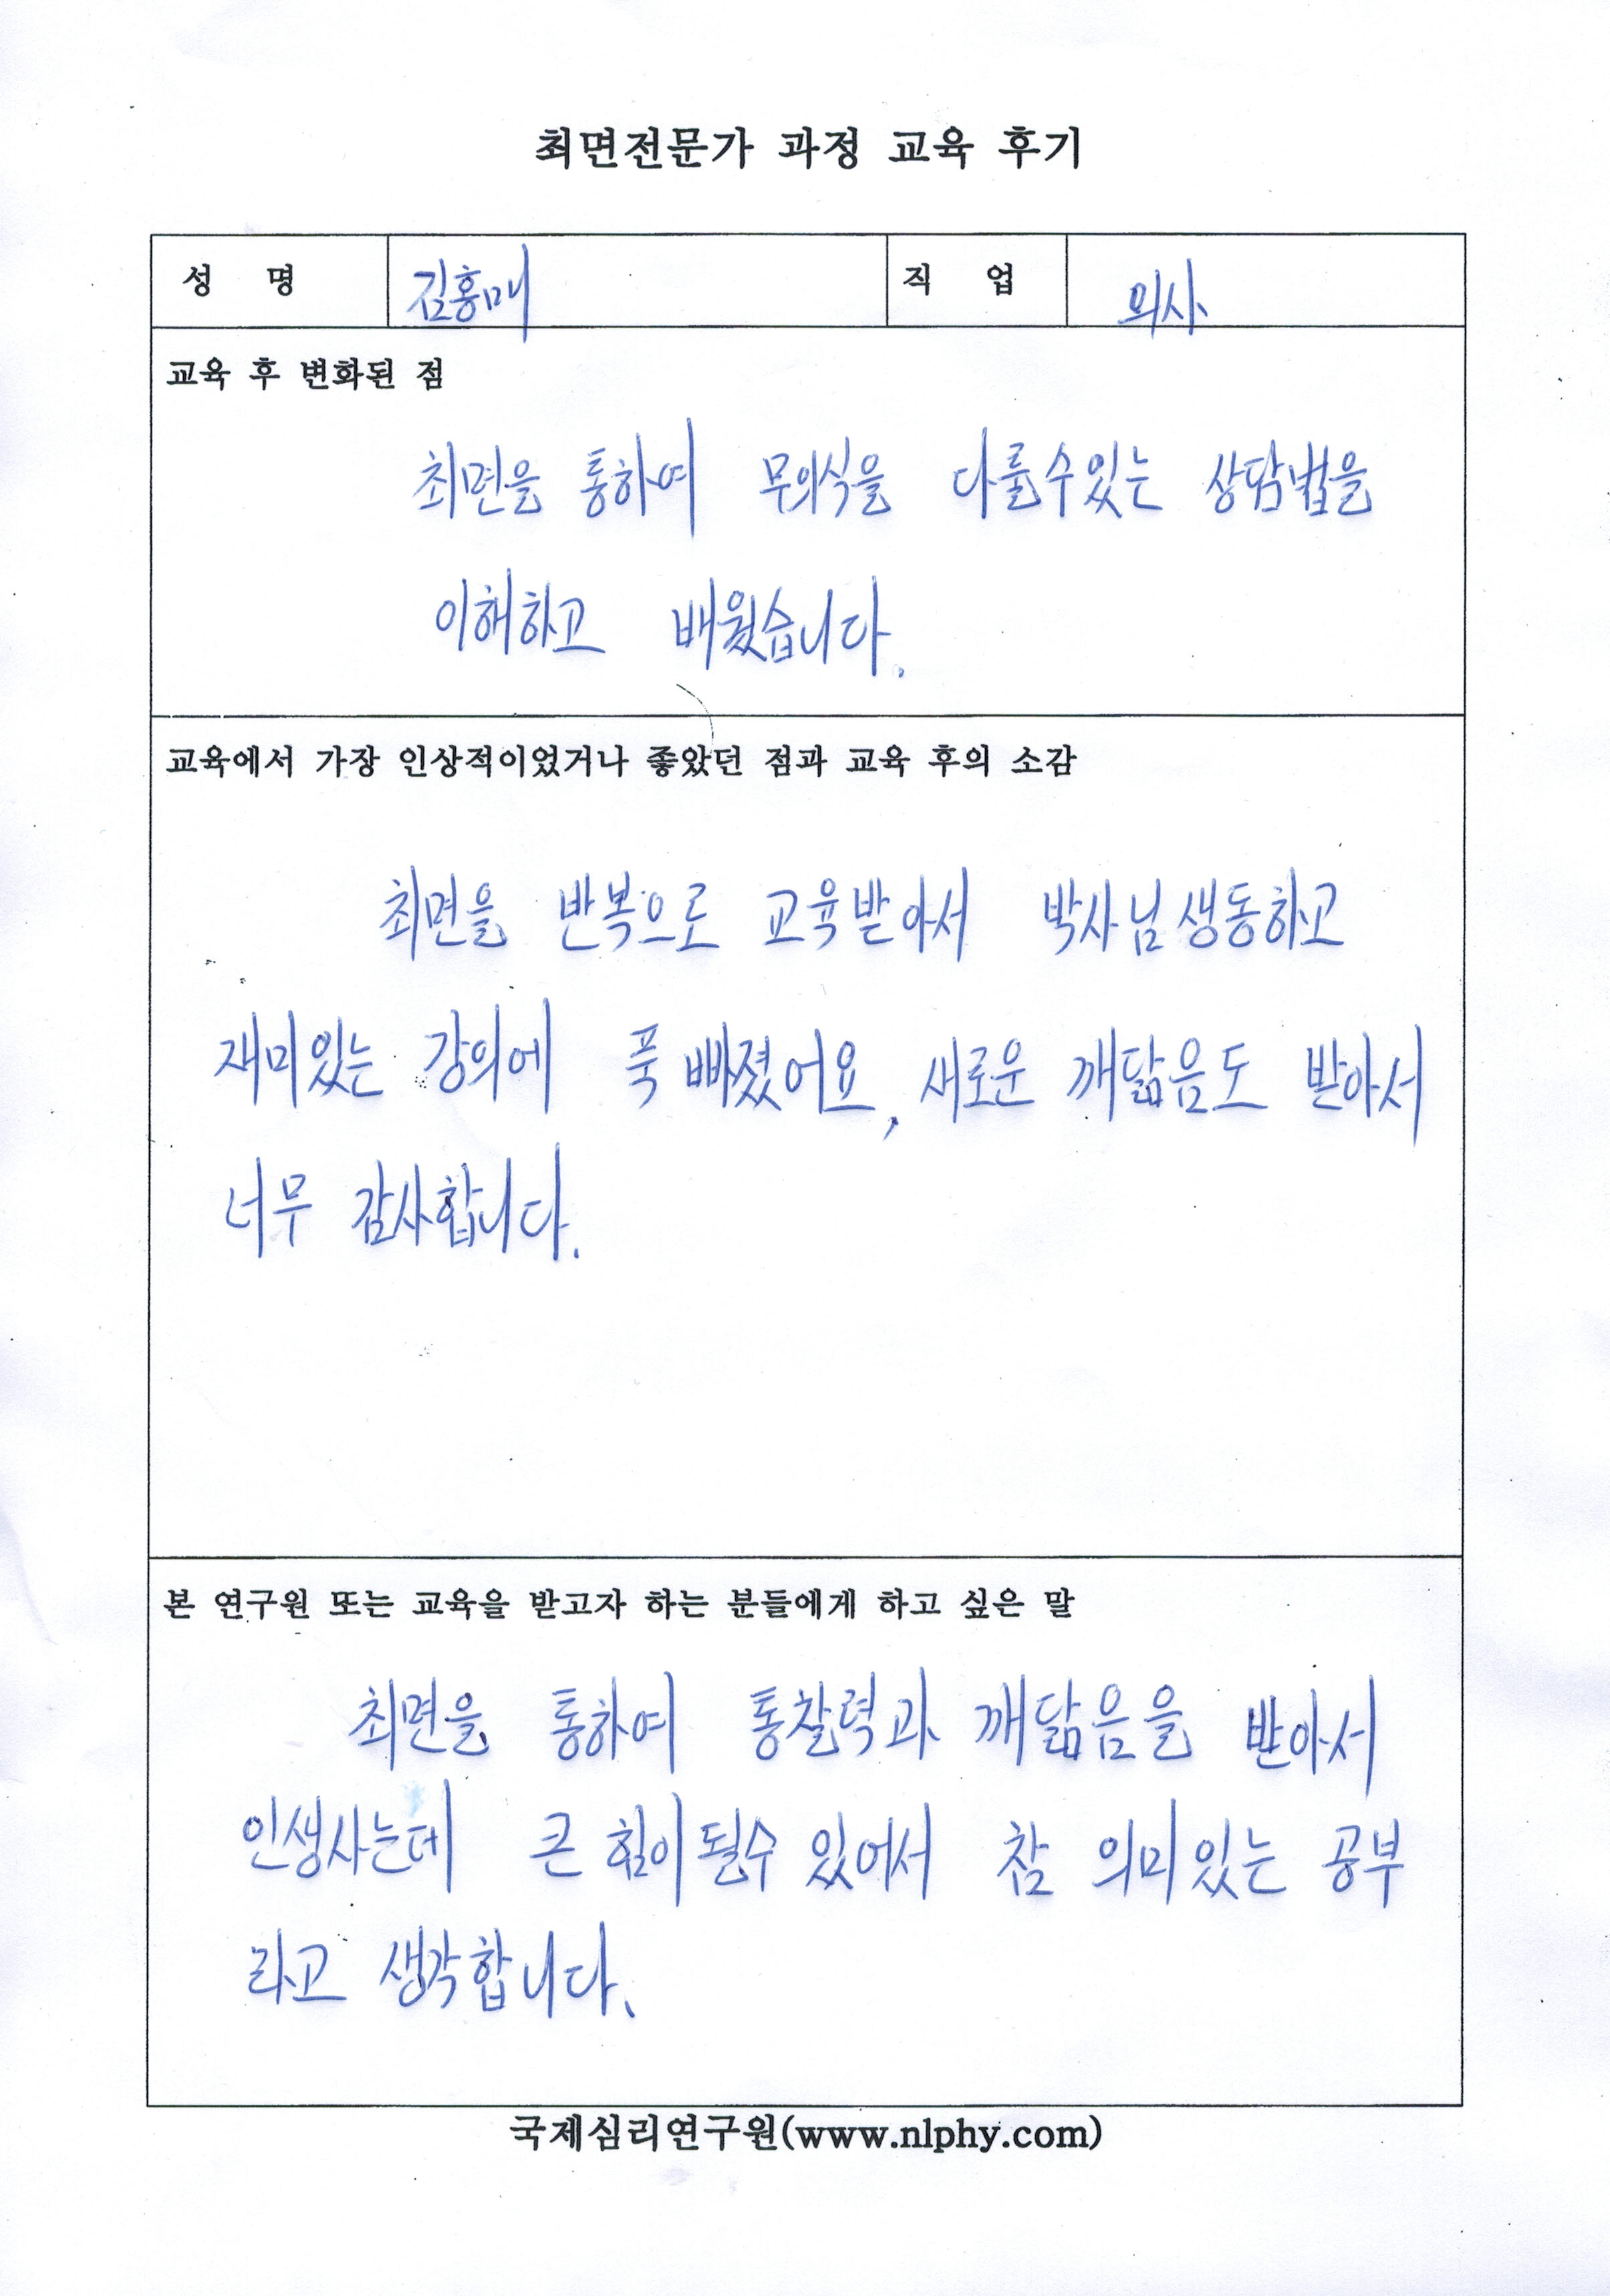 최면전문가 과정 교육 후기
성 명 김홍매 직 업 의사
교육 후 변화된 점
최면을 통하여 무의식을 다룰수있는 상담법을
이해하고 배웠습니다.
교육에서 가장 인상적이었거나 좋았던 점과 교육 후의 소감
최면을 반복으로 교육받아서 박사님생동하고
재미있는 강의에 푹 빠졌어요, 새로운 깨닮음도 받아서
너무 감사합니다.
본 연구원 또는 교육을 받고자 하는 분들에게 하고 싶은 말
최면을 통하여 통찰력과 깨닮음을 받아서
인생사는데 큰 힘이될수 있어서 참 의미있는 공부
라고 생각합니다.
국제심리연구원(www.nlphy.com)